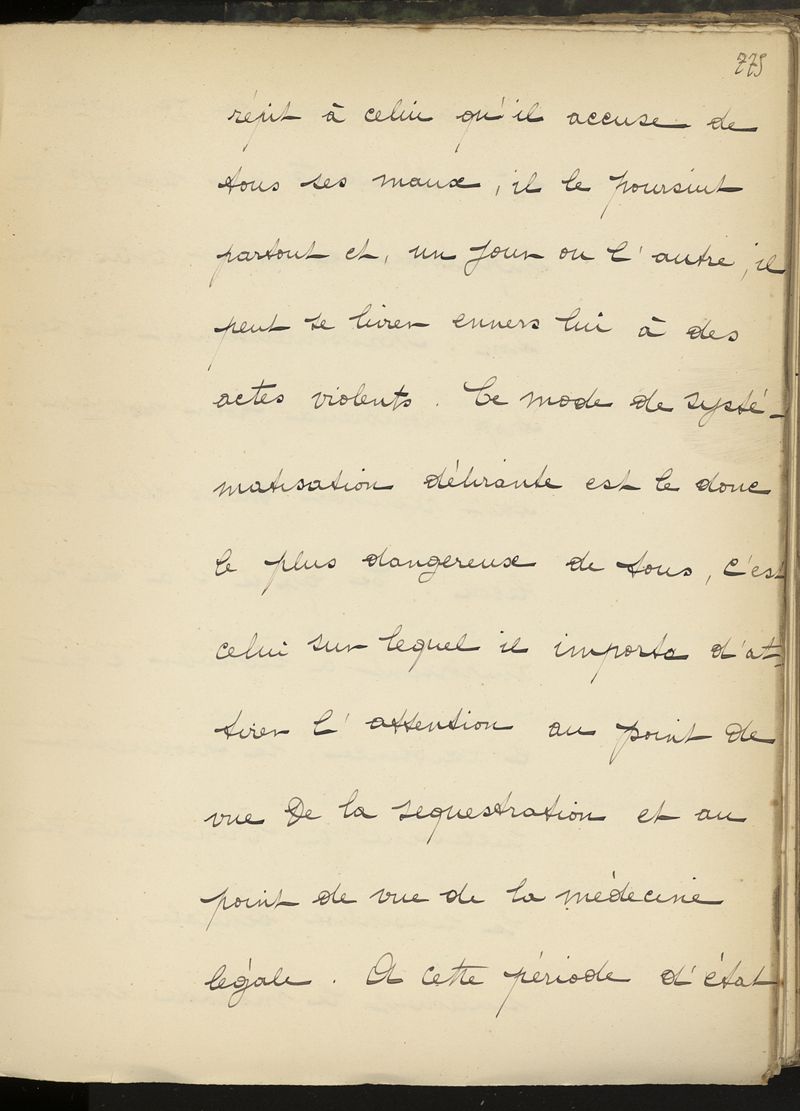 775
répit à celui qu'il accuse de
tous ses maux, il le poursuit
partout et, un jour ou l'autre, il
peut se livrer envers lui à des
actes violents. Ce mode de systé-
matisation délirante est le donc
le plus dangereux de tous, c'est
celui sur lequel il importe d'at-
tirer l'attention au point de
vue De la sequestration et au
point de vue de la médecine
légale. A cette période d'état